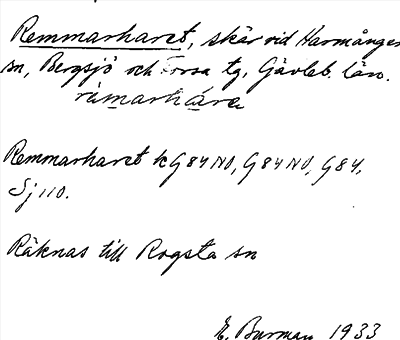 Remmarharet, skär vid Harmånger
sn, Bergsjö och Forsa tg, Gävleb. län.
rämarhára
Remmarharet k G84NO, G84NO, G84,
Sj 110.
Räknas till Rogsta sn
E. Burman 1933